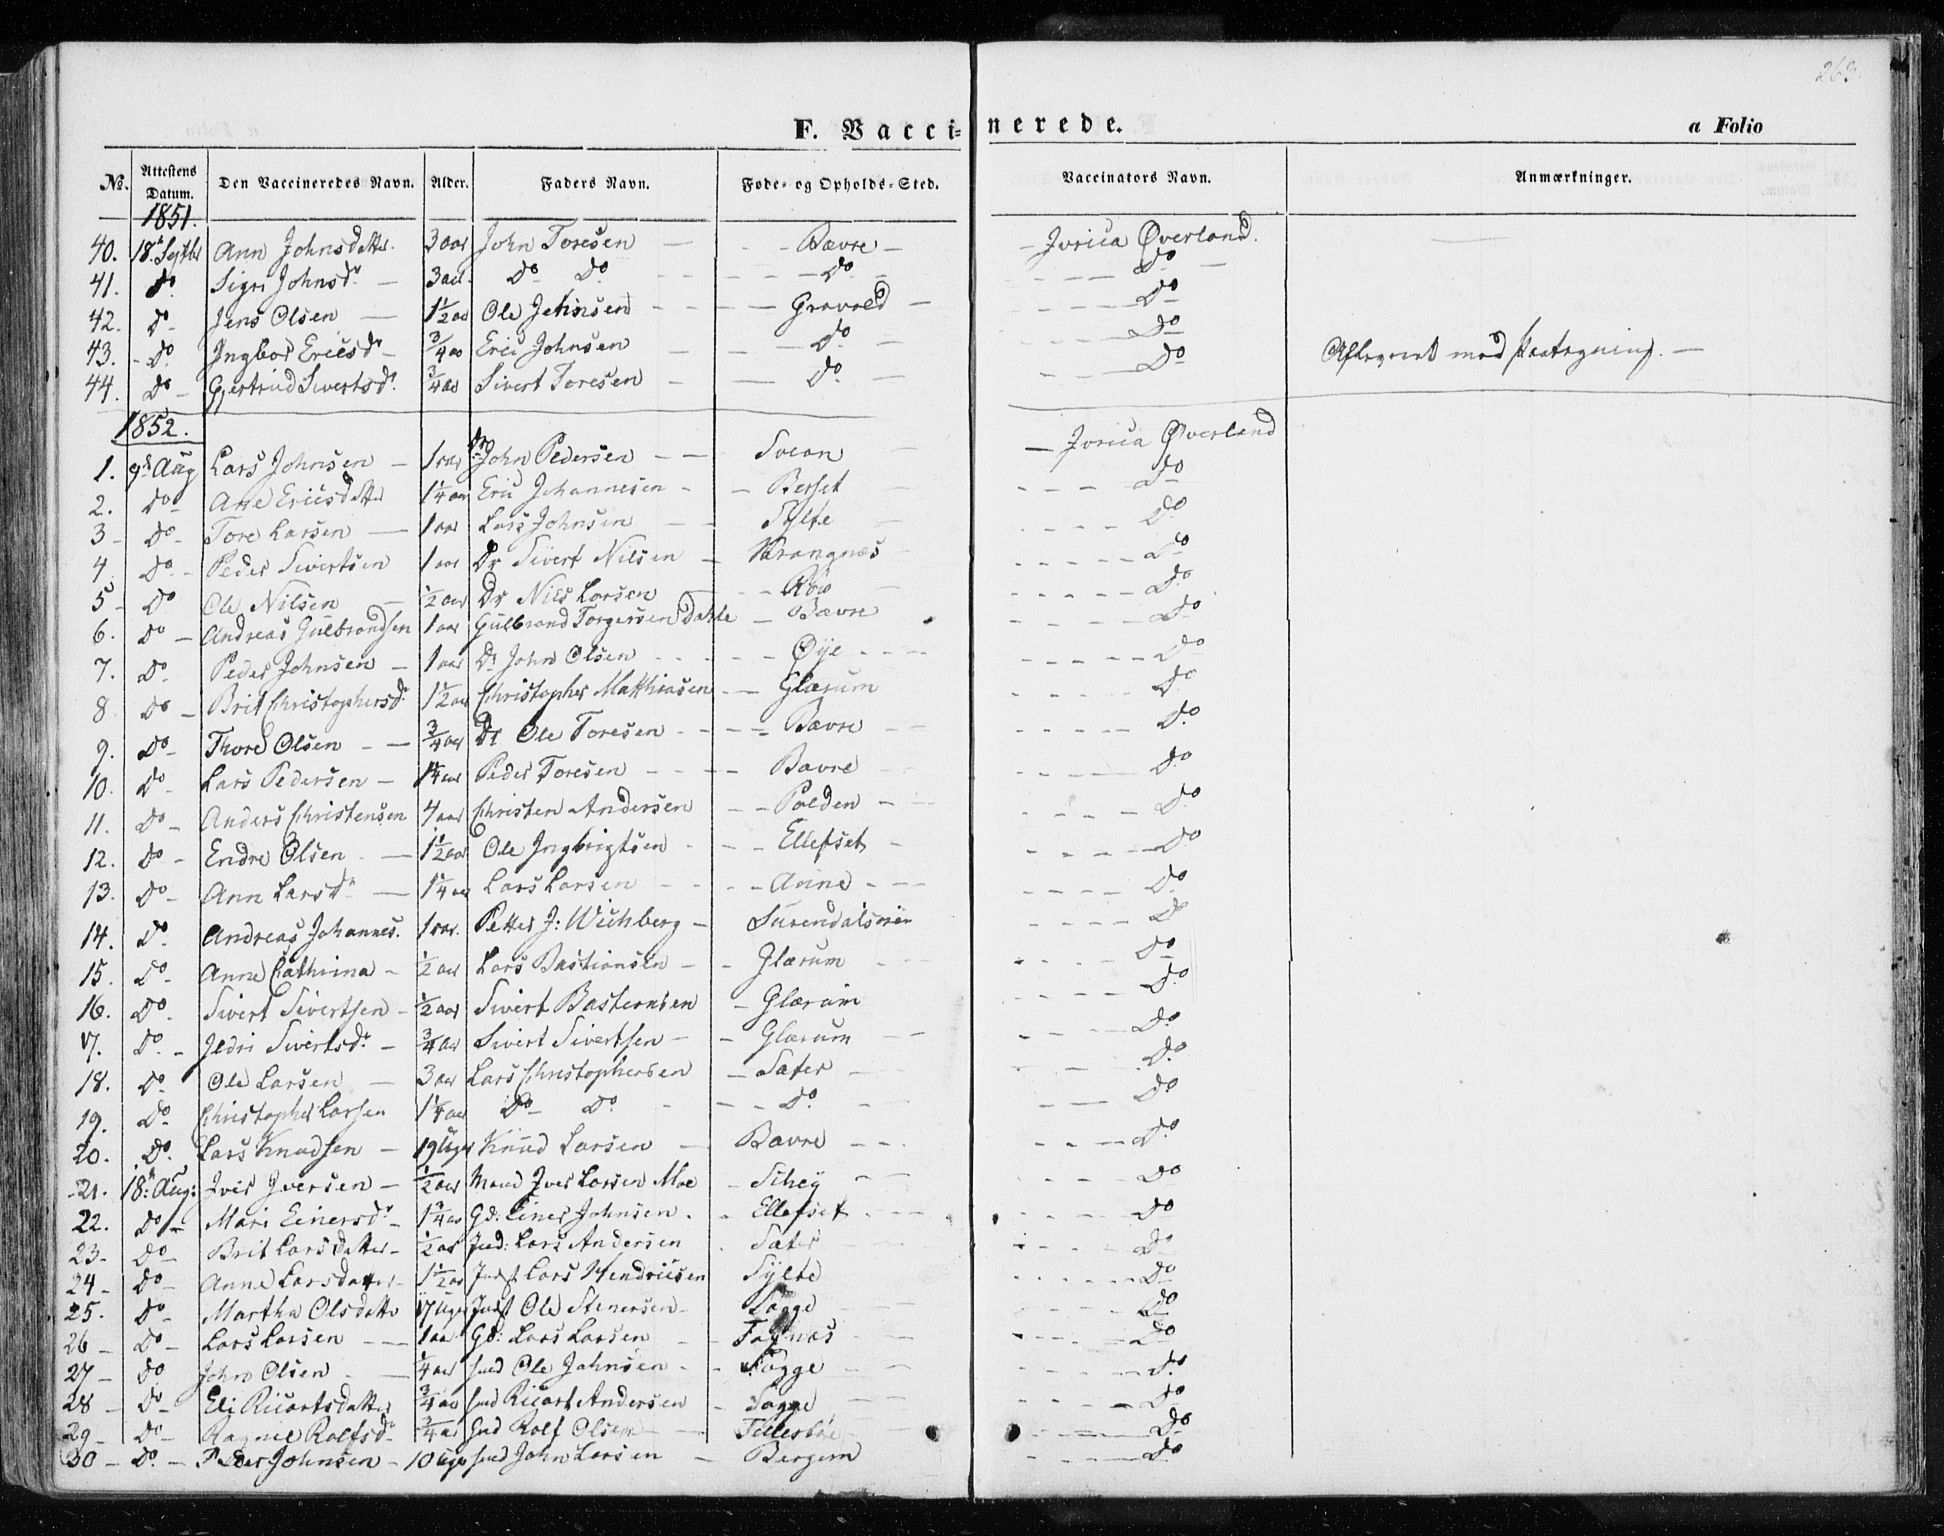 263.
F. Vaccinerede.
a Folio
No. Attestens Datum. Den Vaccineredes Navn. Alder. Faders Navn. Føde- og Opholds-Sted. Vaccinators Navn. Anmærkninger.
1851.
40. 18. Septbr Ann Johnsdatter. 3 aar John Toresen — Bævre — Øverland.
41. Do. Sigri Johnsdr — 3 aar. Do Do — Do — Do
42. Do Jens Olsen — 1½ aar Ole Johnsen — Gravold — Do
43. Do Ingbor Ericsdr — ¾ aar Eric Johnsen — Do — Do
44. Do Gjertrud Sivertsdr. ¾ aar Sivert Toresen — Do — Do Afleveret med Paategning. —
1852.
1. 9d Aug Lars Johnsen — 1 aar John Pedersen — Svean — Øverland
2. Do Ane Ericsdatter 1¼ aar Eric Johannesen - Berset - Do
3 Do Tore Larsen — 1 aar Lars Johnsen — Sylte Do
4. Do Peder Sivertsen 1 aar Dr Sivert Nilsen — Krangnæs Do
5 Do Ole Nilsen ½ aar Dr Nils Larsen - Røv Do
6. Do Andreas Gulbrandsen 1 aar Gulbrand Torgersen Dahle — Bævre Do
7. Do Peder Johnsen — 1 aar Dr John Olsen - Øye - Do
8 Do Brit Christophersdr 1½ aar Christopher Matthiasen — Glærum Do
9. Do Thore Olsen — ¾ aar Dr Ole Toresen - Bævre Do
10. Do Lars Pedersen — 1¼ aar Peder Toresen - Bævre Do
11. Do Anders Christensen 4 aar Christen Andersen - Polden - Do
12. Do Endre Olsen — 1½ aar Ole Ingbrigtsen - Ellefset - Do
13. Do Ann Larsdr — 1¼ aar Lars Larsen - Aune - Do
14. Do Andreas Johannes. 1 aar. Petter J: Wichberg — Surendalsøren Do
15. Do Anne Cathrina — ½ aar Lars Bastiansen - Glærum Do
16. Do Sivert Sivertsen - ½ aar Sivert Basternsen - Glærum Do
17. Do Ildri Sivertsdr. — ¾ aar Sivert Sivertsen - Glærum - Do
18. Do Ole Larsen — 3 aar Lars Christophersen - Sæter — Do
19. Do Christopher Larsen 1¼ aar Do Do - Do. Do
20. Do. Lars Knudsen — 19 Uger Knud Larsen — Bævre - Do
21. 18. Aug: Iver Iversen — ½ aar Mand Iver Larsen Moe - Schey - Do
22. Do Mari Einersdr — 1¾ aar Gd: Einer Johnsen. Ellefset - Do
23 - Do Brit Larsdatter — ½ aar Ind: Lars Andersen Sæter Do
24 - Do Anne Larsdatter - 1½ aar Indst Lars Hendricsen Sylte Do
25. Do Martha Olsdatter 17 Uger Indst Ole Stenersen — Sogge Do
26 - Do Lars Larsen — 1 aar Gd: Lars Larsen - Tognæs Do
27 - Do John Olsen — ¼ aar Ind Ole Johnsen - Sogge Do
28 - Do Eli Ricartsdatter ¾ aar Ind Ricart Andersen - Sogge Do
29 - Do Ragnil Rolfsdr ¾ aar Ind Rolf Olsen — Tellesbøe Do
30 - Do. — Peder Johnsen — 10 Uger Ind John Larsen - Bergem Do